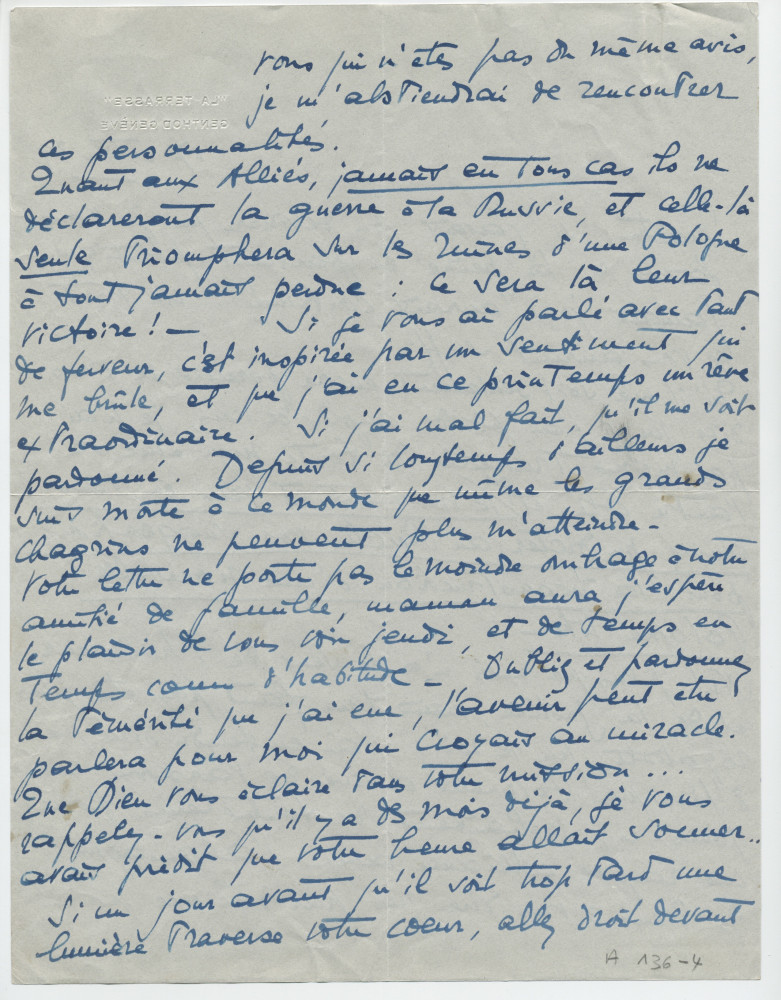 vous qui n'êtes pas du même avis,
je m'abstiendrai de rencontrer
"LA TERRASSE"
GENTHOD GENÈVE
ces personnalités.
Quant aux Alliés, jamais en tous cas ils ne
déclareront la guerre à la Russie, et celle-là
seule triomphera sur les ruines d'une Pologne
à tout jamais perdue : ce sera là leur
victoire! — Si je vous ai parlé avec tant
de ferveur, c'est inspirée par un sentiment qui
me brûle, et que j'ai eu ce printemps un rêve
extraordinaire. Si j'ai mal fait, qu'il me soit
pardonné. Depuis si longtemps d'ailleurs je
suis morte à ce monde que même les grands
chagrins ne peuvent plus m'atteindre -
Votre lettre ne porte pas le moindre ombrage à notre
amitié de famille, maman aura j'espère
le plaisir de vous voir jeudi, et de temps en
temps comme d'habitude - Oubliez et pardonnez
la témérité que j'ai eue, l'avenir peut être
parlera pour moi qui croyais au miracle.
Que Dieu vous éclaire dans votre mission...
rappelez-vous qu'il y a des mois déjà, je vous
avais prédit que votre heure allait sonner..
Si un jour avant qu'il soit trop tard une
lumière traverse votre coeur, allez droit devant
A 136-4